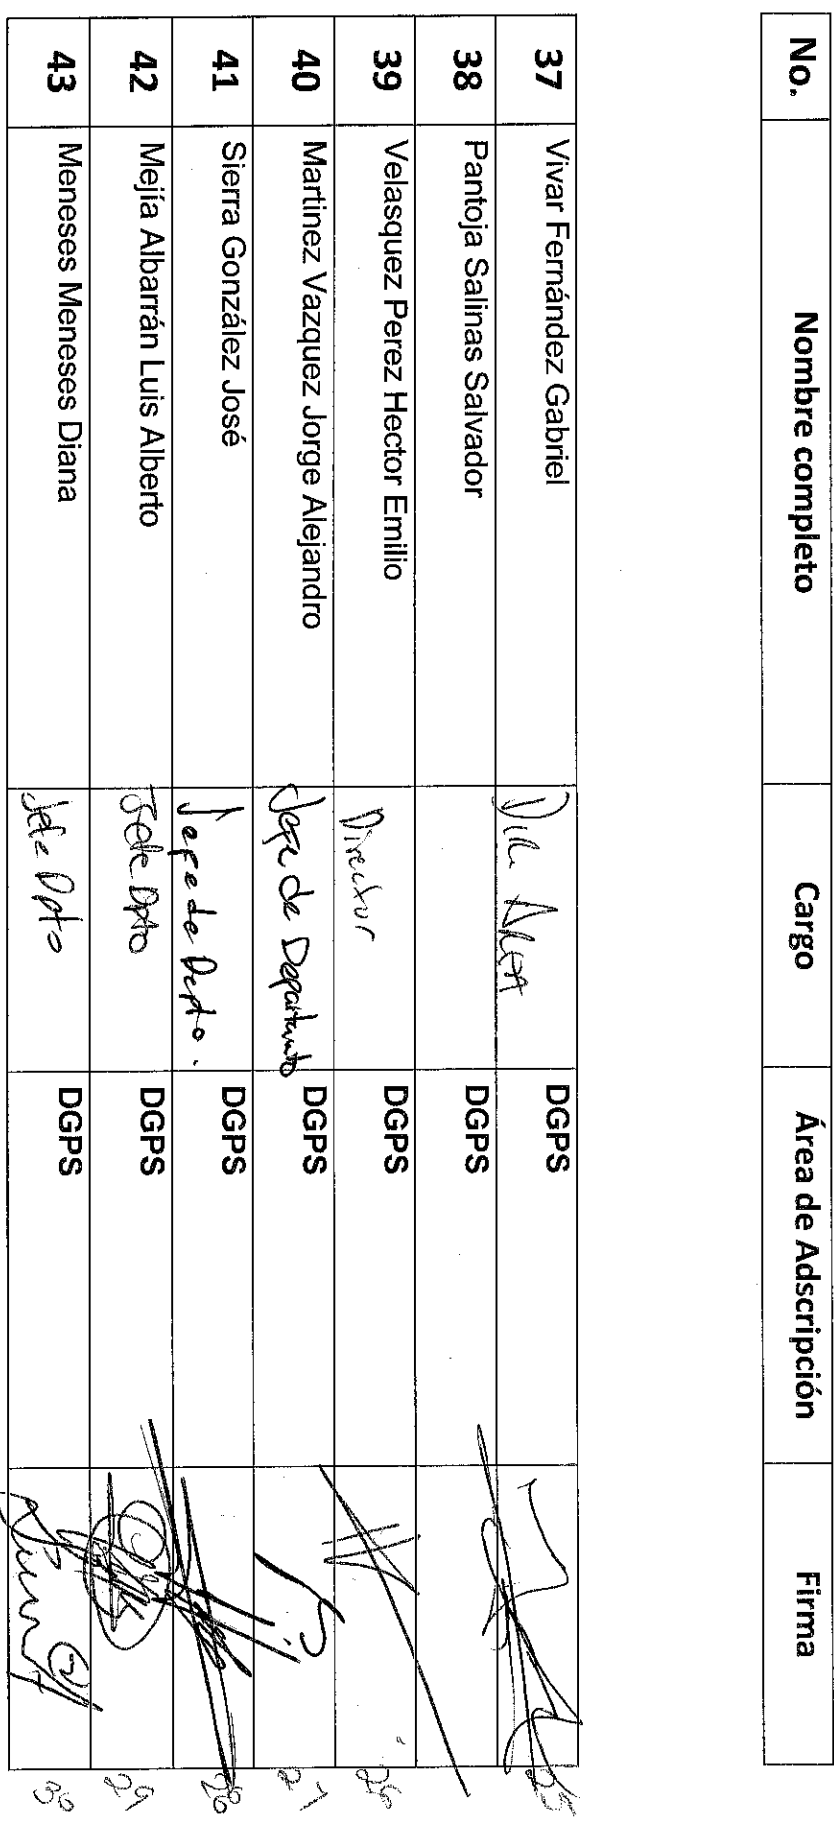 No. Nombre completo Cargo Área de Adscripción Firma
37 Vivar Fernández Gabriel DGPS 25
38 Pantoja Salinas Salvador DGPS
39 Velasquez Perez Hector Emilio Director DGPS 26
40 Martinez Vazquez Jorge Alejandro Jefe de Departamento DGPS 27
41 Sierra González José Jefe de Depto. DGPS 28
42 Mejía Albarrán Luis Alberto Jefe Dpto DGPS 29
43 Meneses Meneses Diana Jefe Dpto DGPS 30